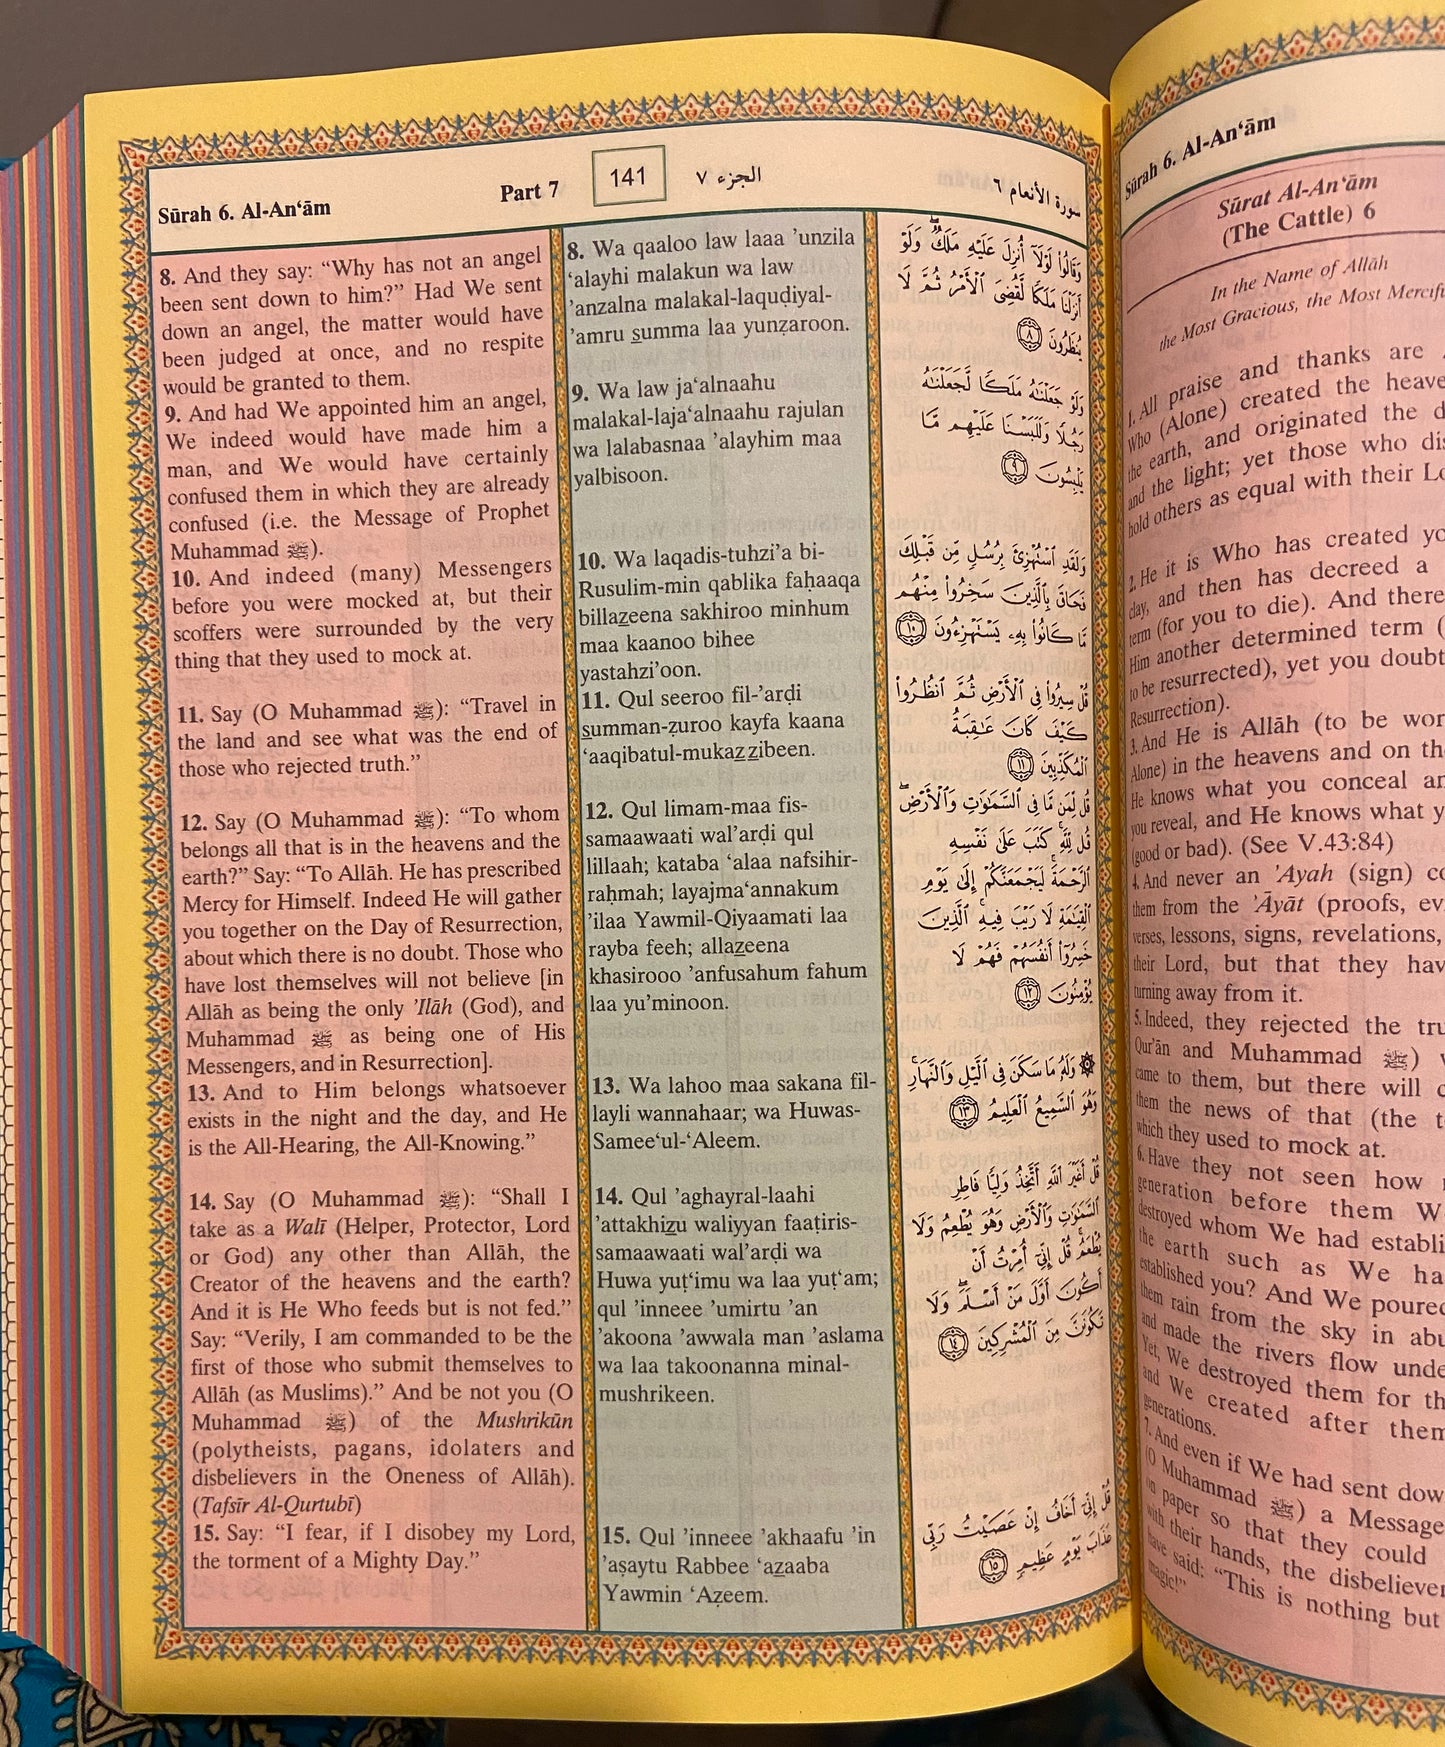 Sūrah 6. Al-An‘ām
Part 7
141
الجزء ٧
سورة الأنعام ٦
8. And they say: “Why has not an angel
been sent down to him?” Had We sent
down an angel, the matter would have
been judged at once, and no respite
would be granted to them.
9. And had We appointed him an angel,
We indeed would have made him a
man, and We would have certainly
confused them in which they are already
confused (i.e. the Message of Prophet
Muhammad ﷺ).
10. And indeed (many) Messengers
before you were mocked at, but their
scoffers were surrounded by the very
thing that they used to mock at.
11. Say (O Muhammad ﷺ): “Travel in
the land and see what was the end of
those who rejected truth.”
12. Say (O Muhammad ﷺ): “To whom
belongs all that is in the heavens and the
earth?” Say: “To Allāh. He has prescribed
Mercy for Himself. Indeed He will gather
you together on the Day of Resurrection,
about which there is no doubt. Those who
have lost themselves will not believe [in
Allāh as being the only ’Ilāh (God), and
Muhammad ﷺ as being one of His
Messengers, and in Resurrection].
13. And to Him belongs whatsoever
exists in the night and the day, and He
is the All-Hearing, the All-Knowing.”
14. Say (O Muhammad ﷺ): “Shall I
take as a Walī (Helper, Protector, Lord
or God) any other than Allāh, the
Creator of the heavens and the earth?
And it is He Who feeds but is not fed.”
Say: “Verily, I am commanded to be the
first of those who submit themselves to
Allāh (as Muslims).” And be not you (O
Muhammad ﷺ) of the Mushrikūn
(polytheists, pagans, idolaters and
disbelievers in the Oneness of Allāh).
(Tafsīr Al-Qurtubī)
15. Say: “I fear, if I disobey my Lord,
the torment of a Mighty Day.”
8. Wa qaaloo law laaa ’unzila
‘alayhi malakun wa law
’anzalna malakal-laquḍiyal-
’amru summa laa yunẓaroon.
9. Wa law ja‘alnaahu
malakal-laja‘alnaahu rajulan
wa lalabasnaa ’alayhim maa
yalbisoon.
10. Wa laqadis-tuhzi’a bi-
Rusulim-min qablika faḥaaqa
billazeena sakhiroo minhum
maa kaanoo bihee
yastahzi’oon.
11. Qul seeroo fil-’arḍi
summan-ẓuroo kayfa kaana
‘aaqibatul-mukazzibeen.
12. Qul limam-maa fis-
samaawaati wal’arḍi qul
lillaah; kataba ‘alaa nafsihir-
raḥmah; layajma‘annakum
’ilaa Yawmil-Qiyaamati laa
rayba feeh; allazeena
khasirooo ’anfusahum fahum
laa yu’minoon.
13. Wa lahoo maa sakana fil-
layli wannahaar; wa Huwas-
Samee‘ul-‘Aleem.
14. Qul ’aghayral-laahi
’attakhizu waliyyan faaṭiris-
samaawaati wal’arḍi wa
Huwa yuṭ‘imu wa laa yuṭ‘am;
qul ’inneee ’umirtu ’an
’akoona ’awwala man ’aslama
wa laa takoonanna minal-
mushrikeen.
15. Qul ’inneee ’akhaafu ’in
’aṣaytu Rabbee ‘azaaba
Yawmin ‘Aẓeem.
وَقَالُوا۟ لَوْلَآ أُنزِلَ عَلَيْهِ مَلَكٌ ۖ وَلَوْ
أَنزَلْنَا مَلَكًا لَّقُضِىَ ٱلْأَمْرُ ثُمَّ لَا
يُنظَرُونَ ٨
وَلَوْ جَعَلْنَـٰهُ مَلَكًا لَّجَعَلْنَـٰهُ
رَجُلًا وَلَلَبَسْنَا عَلَيْهِم مَّا
يَلْبِسُونَ ٩
وَلَقَدِ ٱسْتُهْزِئَ بِرُسُلٍ مِّن قَبْلِكَ
فَحَاقَ بِٱلَّذِينَ سَخِرُوا۟ مِنْهُم
مَّا كَانُوا۟ بِهِۦ يَسْتَهْزِءُونَ ١٠
قُلْ سِيرُوا۟ فِى ٱلْأَرْضِ ثُمَّ ٱنظُرُوا۟
كَيْفَ كَانَ عَـٰقِبَةُ
ٱلْمُكَذِّبِينَ ١١
قُل لِّمَن مَّا فِى ٱلسَّمَـٰوَٰتِ وَٱلْأَرْضِ ۖ
قُل لِّلَّهِ ۚ كَتَبَ عَلَىٰ نَفْسِهِ
ٱلرَّحْمَةَ ۚ لَيَجْمَعَنَّكُمْ إِلَىٰ يَوْمِ
ٱلْقِيَـٰمَةِ لَا رَيْبَ فِيهِ ۚ ٱلَّذِينَ
خَسِرُوٓا۟ أَنفُسَهُمْ فَهُمْ لَا
يُؤْمِنُونَ ١٢
۞ وَلَهُۥ مَا سَكَنَ فِى ٱلَّيْلِ وَٱلنَّهَارِ ۚ
وَهُوَ ٱلسَّمِيعُ ٱلْعَلِيمُ ١٣
قُلْ أَغَيْرَ ٱللَّهِ أَتَّخِذُ وَلِيًّا فَاطِرِ
ٱلسَّمَـٰوَٰتِ وَٱلْأَرْضِ وَهُوَ يُطْعِمُ وَلَا
يُطْعَمُ ۗ قُلْ إِنِّىٓ أُمِرْتُ أَنْ
أَكُونَ أَوَّلَ مَنْ أَسْلَمَ ۖ وَلَا
تَكُونَنَّ مِنَ ٱلْمُشْرِكِينَ ١٤
قُلْ إِنِّىٓ أَخَافُ إِنْ عَصَيْتُ رَبِّى
عَذَابَ يَوْمٍ عَظِيمٍ ١٥
Sūrah 6. Al-An‘ām
Sūrat Al-An‘ām
(The Cattle) 6
In the Name of Allāh
the Most Gracious, the Most
1. All praise and thanks are
Who (Alone) created the
the earth, and originated the
and the light; yet those who
hold others as equal with their
2. He it is Who has created
clay, and then has decreed a
term (for you to die). And
Him another determined term
to be resurrected), yet you
Resurrection).
3. And He is Allāh (to be
Alone) in the heavens and on
He knows what you conceal
you reveal, and He knows what
(good or bad). (See V.43:84)
4. And never an ’Ayah (sign)
them from the ’Āyāt (proofs,
verses, lessons, signs, revelations,
their Lord, but that they
turning away from it.
5. Indeed, they rejected the
Qur’ān and Muhammad ﷺ)
came to them, but there will
them the news of that (the
which they used to mock at.
6. Have they not seen how
generation before them
destroyed whom We had
the earth such as We
established you? And We poured
them rain from the sky in
and made the rivers flow
Yet, We destroyed them for
and We created after them
generations.
7. And even if We had sent down
(O Muhammad ﷺ) a Message
on paper so that they could
with their hands, the
have said: “This is nothing but
magic!”